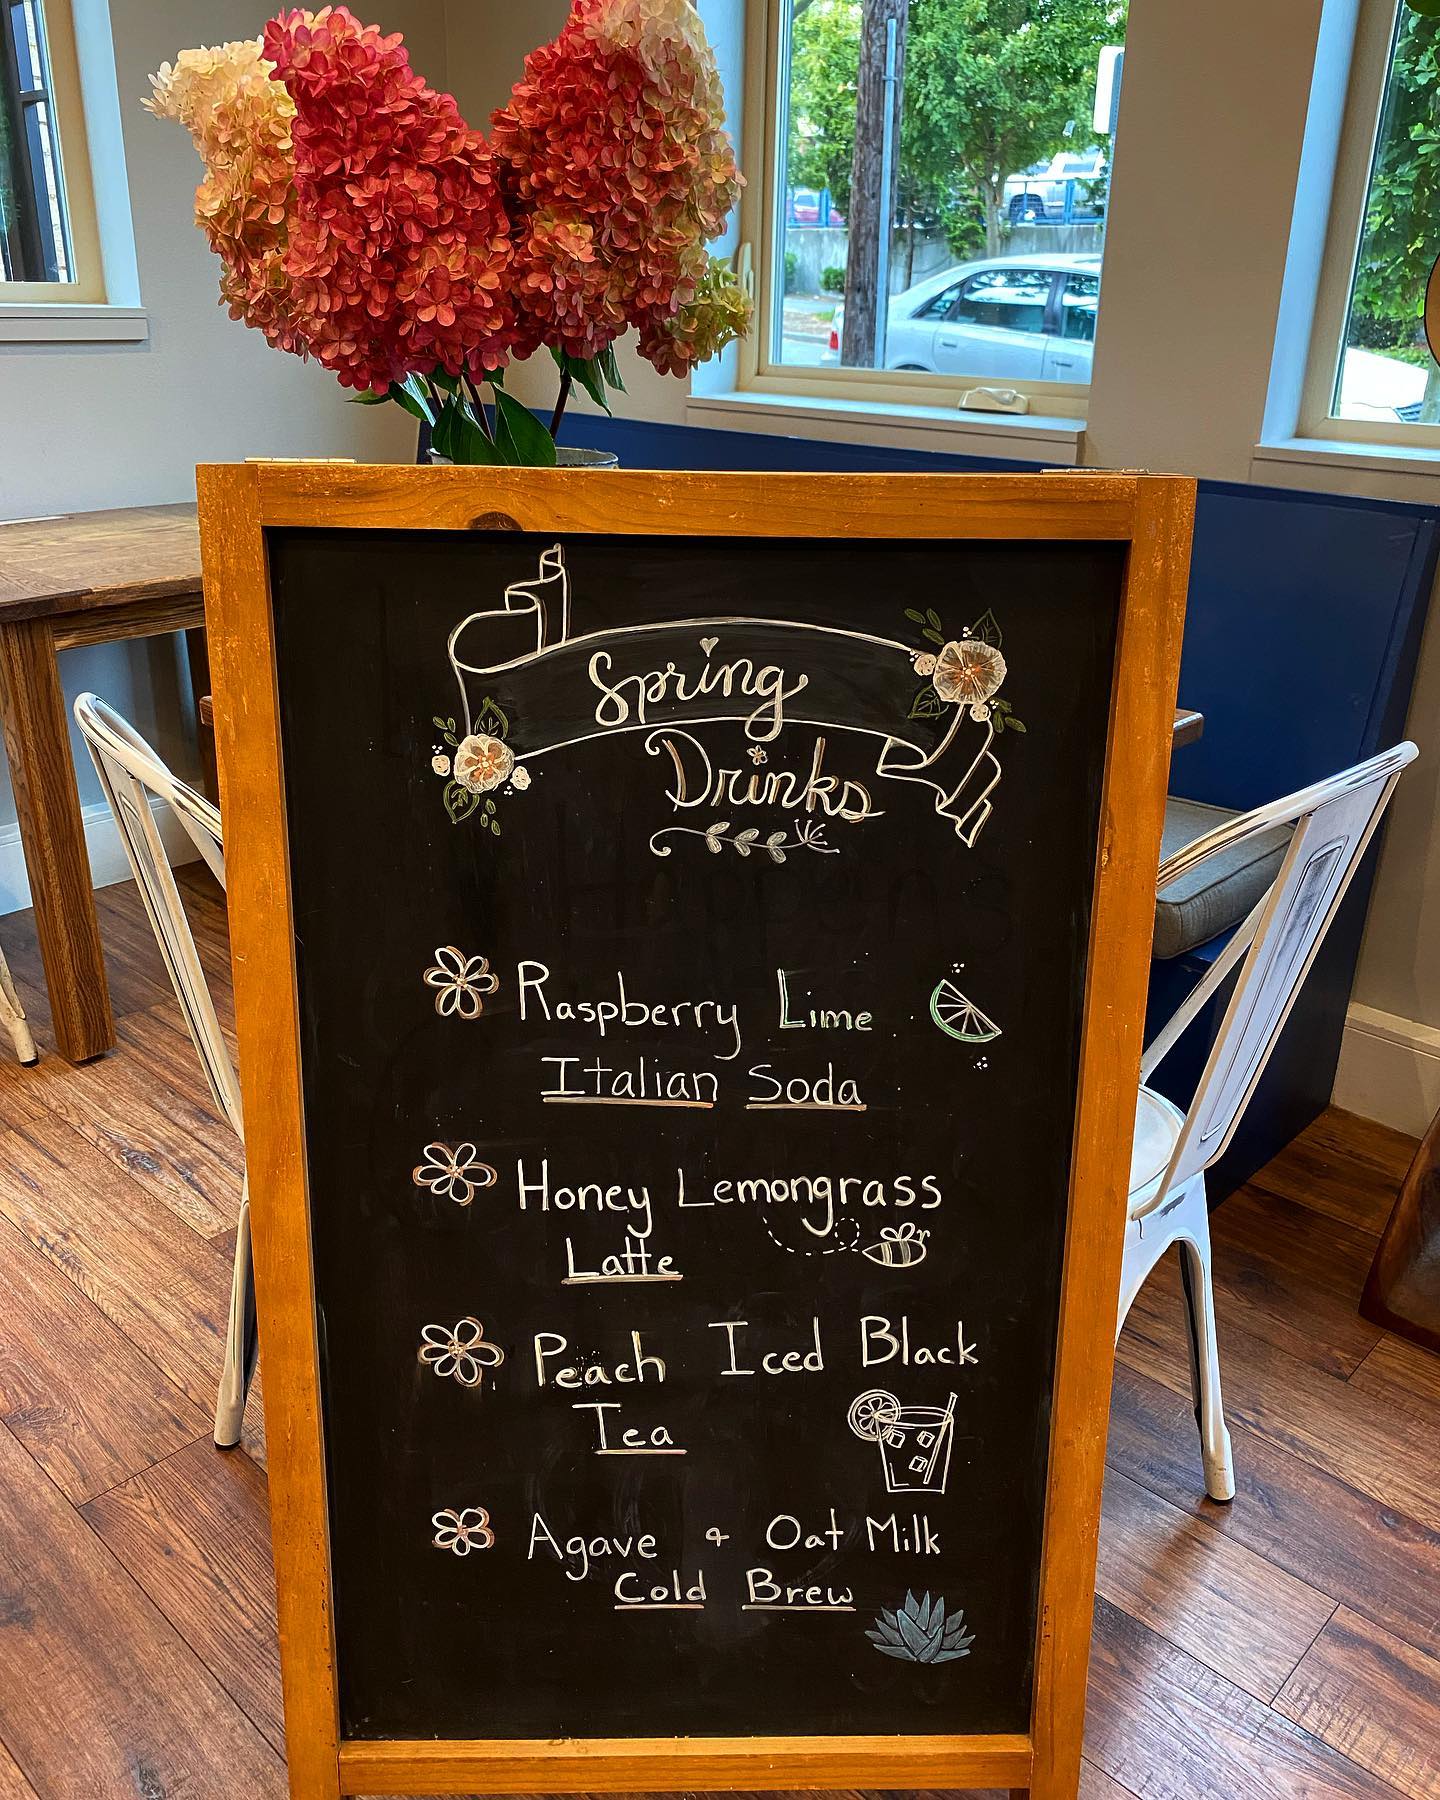 Spring
Drinks
Raspberry Lime
Italian Soda
Honey Lemongrass
Latte
Peach Iced Black
Tea
Agave & Oat Milk
Cold Brew